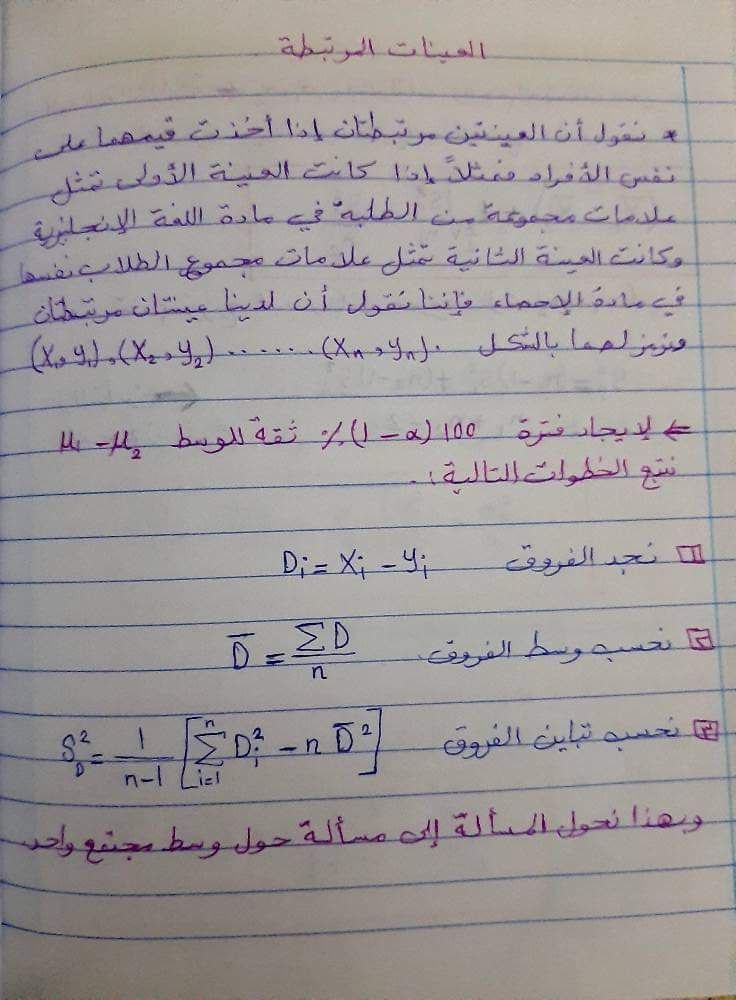 العينات المرتبطة
* نقول أن العينتين مرتبطتان إذا أخذت قيمهما على
نفس الأفراد فمثلاً إذا كانت العينة الأولى تمثل
علامات مجموعة من الطلبة في مادة اللغة الإنجليزية
وكانت العينة الثانية تمثل علامات مجموع الطلاب نفسها
في مادة الإحصاء فإننا نقول أن لدينا عينتان مرتبطتان
ونرمز لهما بالشكل (x₁, y₁), (x₂, y₂) ...... (xₙ, yₙ).
← لإيجاد فترة 100(1-α)% ثقة للوسط μ₁ - μ₂
نتبع الخطوات التالية:.
1 نجد الفروق Dᵢ = xᵢ - yᵢ
2 نحسب وسط الفروق. D̄ = ΣD / n
3 نحسب تباين الفروق S²_D = 1/(n-1) [Σⁿᵢ₌₁ Dᵢ² - n D̄²]
وبهذا نحول المسألة إلى مسألة حول وسط مجتمع واحد